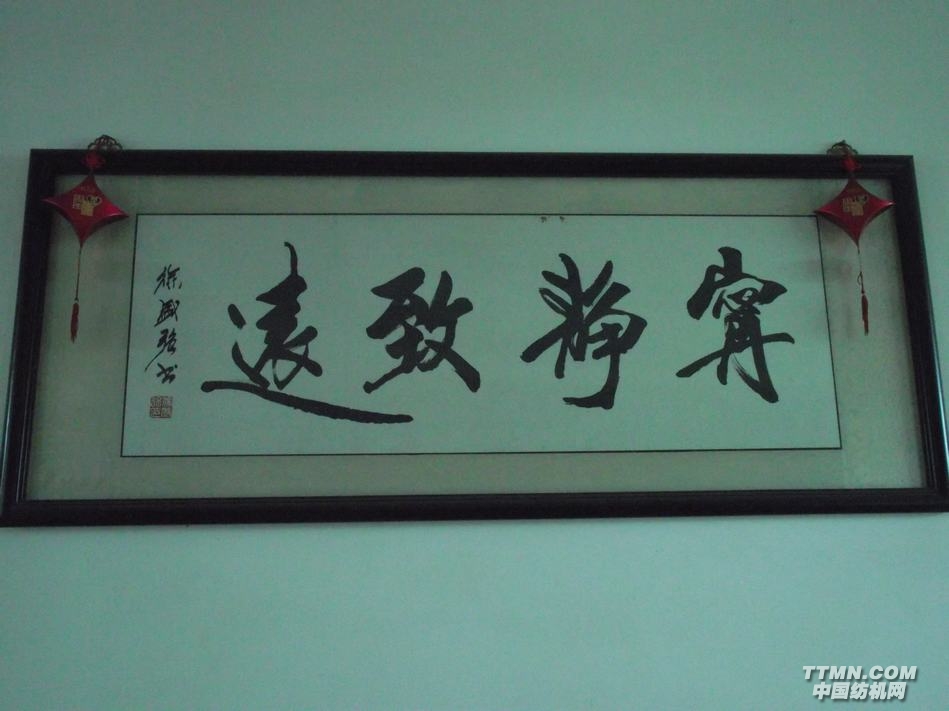 寧靜致遠
徐盛強书
TTMN.COM
中国纺机网